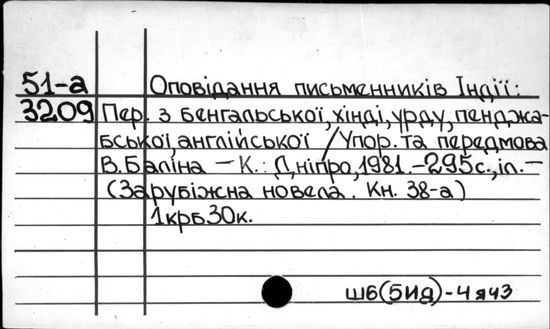 51-а Оповідання письменників Індії:
3209 Пер. з бенгальської, хінді, урду, пенджа-
бської, англійської / Упор. та передмова
В. Баліна — К.: Дніпро, 1981. — 295с., іл. —
(Зарубіжна новела. Кн. 38-а)
1крб30к.
Ш6(5Ид)-4я43